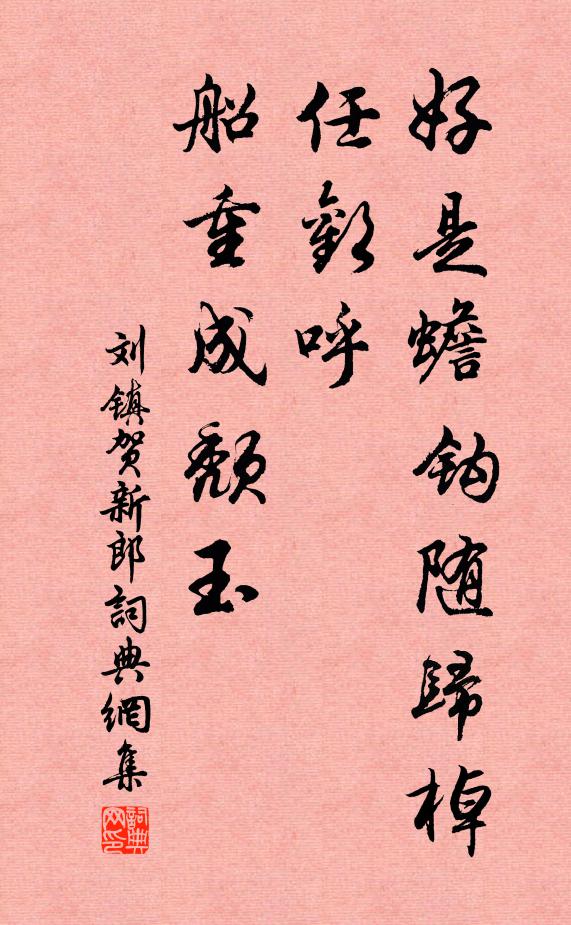 好是蟾钩随歸棹
任歡呼
船重成颓玉
刘镇贺新郎詞典網集
詞典网印